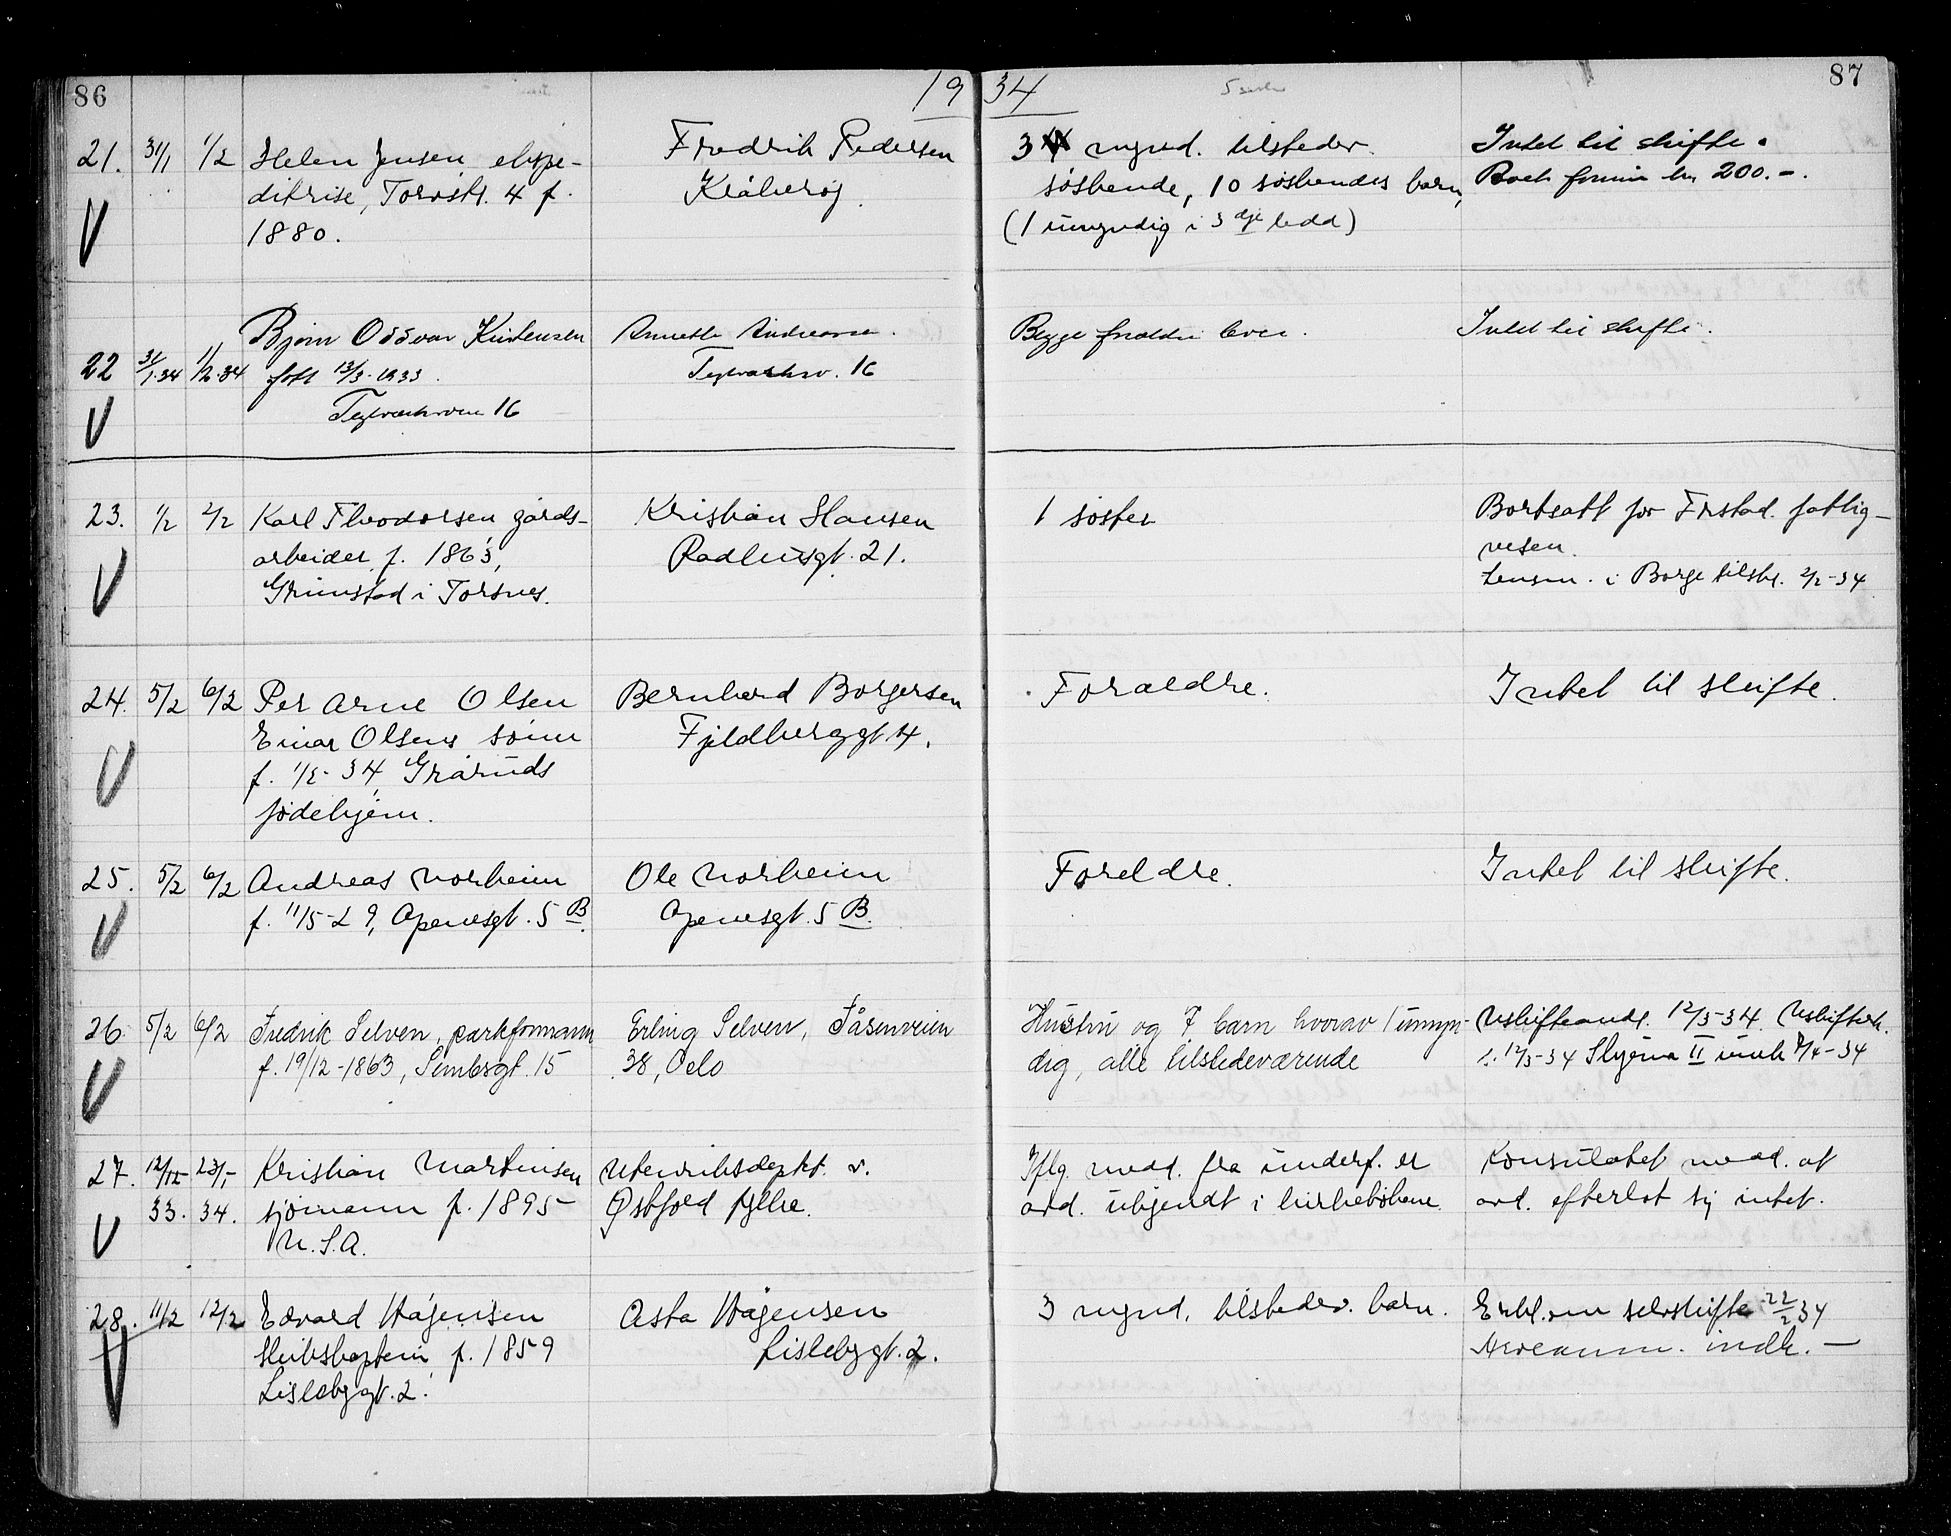 86
19 34
87
21. 31/1 1/2 Helen Jensen, ekspe-
ditrise, Torvstr. 4 f.
1880.
Fredrik Pedersen
Kråkerøy.
3 mynd. tilsteder
søskende, 10 søskendes barn,
(1 umyndig i 3dje ledd)
Intet til skifte.
200.-.
22 31/1.34 1/2.34 Bjørn Oddvar Kristensen
født 13/3-1933.
Teglverksveien 16
Annette Andreassen.
Teglverksv. 16
Begge foreldre lever.
Intet til skifte.
23. 1/2 2/2 Karl Theodorsen, gårds-
arbeider, f. 1863,
Grimstad i Torsnes.
Kristian Hansen
Rådhusgt. 21.
1 søster
Bortsatt for Frstad. fattig-
vesen.
Lensm. i Borge tilskr. 2/2-34
24. 5/2 6/2 Per Arne Olsen
Einar Olsens sønn
f. 1/2-34, Gråruds
fødehjem.
Bernhard Borgersen
Fjeldberggt. 4.
Foraeldre.
Intet til skifte.
25. 5/2 6/2 Andreas Norheim
f. 11/5-29, Apenesgt. 5 B.
Ole Norheim
Apenesgt. 5 B.
Foreldre.
Intet til skifte.
26. 5/2 6/2 Fredrik Selven, parkformann
f. 19/12-1863, Lembsgt. 15
Erling Selven, Fåsenveien
38, Oslo
Hustru og 7 barn hvorav 1 umyn-
dig, alle tilstedeværende
Uskifteandr. 12/3-34. Uskifteatt.
s. 12/3-34 Skjema II innk 7/4-34
27. 12/12- 23/1-
33. 34.
Kristian Martinsen
sjømann f. 1895
U.S.A.
Utenriksdepkt. v.
Østfold fylke.
Iflg. medd. fra underf. er
avd. ukjendt i kirkebøkene.
Konsulatet medd. at
avd. efterlot sig intet.
28. 11/2 12/2 Edvard Hågensen
skibskaptein f. 1859
Lislebygt. 2.
Asta Hågensen
Lislebygt. 2.
3 mynd. tilstedev. barn.
Erkl. om selvskifte 22/2 34
indk. -